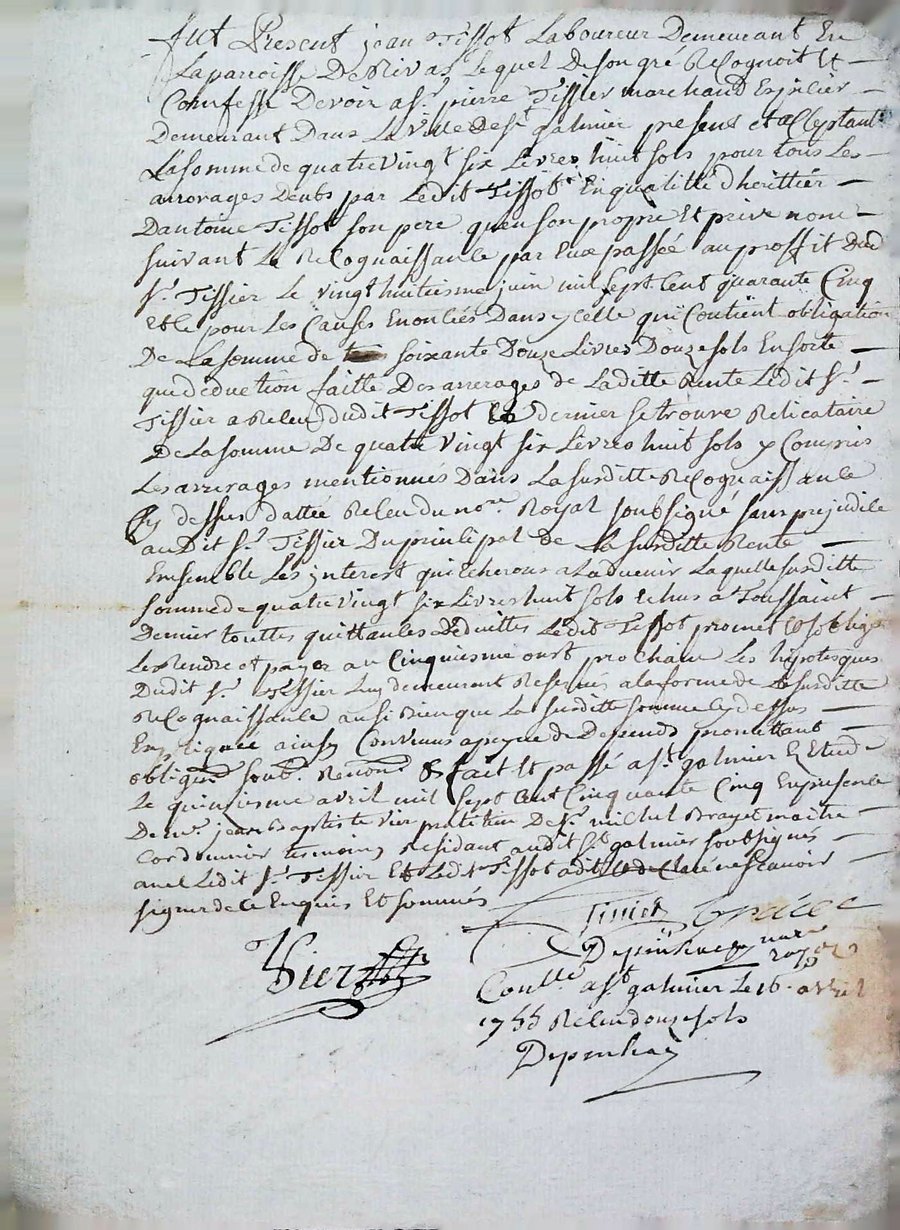 fut Present jean Tissot Laboureur Demeurant En
La parroisse De Rivas Lequel De son gré ReCognoit Et
Confesse Devoir a Sr. pierre Tissier marchand Espicier
Demeurant Dans La Ville de St galmier present et acceptant
La somme de quatre vingt six Livres huit sols pour tous Les
arrorages Deubs par Ledit Tissot En qualitté d'herittier
D'antoine Tissot son pere qu'en son propre Et privé nom
suivant La ReCognaissance par Eux passée au proffit dud
Sr. Tissier Le vingt huitiesme juin mil sept Cent quarante Cinq
Et Ce pour Les Causes Enoncées Dans ycelle qui Contient obligation
De La somme de soixante Douze Livres Douze sols En sorte
que déduction faitte Des arrerages de Laditte Rente Ledit Sr.
Tissier a Receu dudit Tissot Ce dernier se trouve Relicataire
De La somme De quatre vingt six Livres huit sols y Compris
Les arrerages mentionnés Dans La susditte ReCognaissance
Cy dessus dattée Receu du nore. Royal soubsigné sans prejudice
au Dit Sr. Tissier Du principal de La susditte Rente
Ensemble Les jnterest qui Echerons a L'advenir Laquelle susditte
somme de quatre vingt six Livres huit sols Echus a Toussaint
Dernier touttes quittances Déduittes Ledit Tissot promet et s'oblige
Les Rendre et payer au Cinquiesme oust prochain Les hipotesques
Dudit Sr. Tissier Luy demeurant Reservés a la forme de La susditte
ReCognaissance aussi Bien que La susditte somme Cy dessus
Expliquée ainsy Convenus a peyne de Depends promettant
obligent soub. Renond. fait Et passé a St. galmier En Etude
Le quinziesme avril mil sept Cent Cinquante Cinq En presence
De me. jean Baptiste Vier praticien De Sr michel Brayet maitre
Cordonnier tesmoins Residant audit St galmier soubsignés
avec Ledit Sr. Tissier Et Ledit Tissot a dit et de Claré ne scavoir
signer de Ce Enquis Et sommés
Tissier
Vier
nore
royal
Conllé a St. galmier Le 16 avril
1755 Receu douze sols